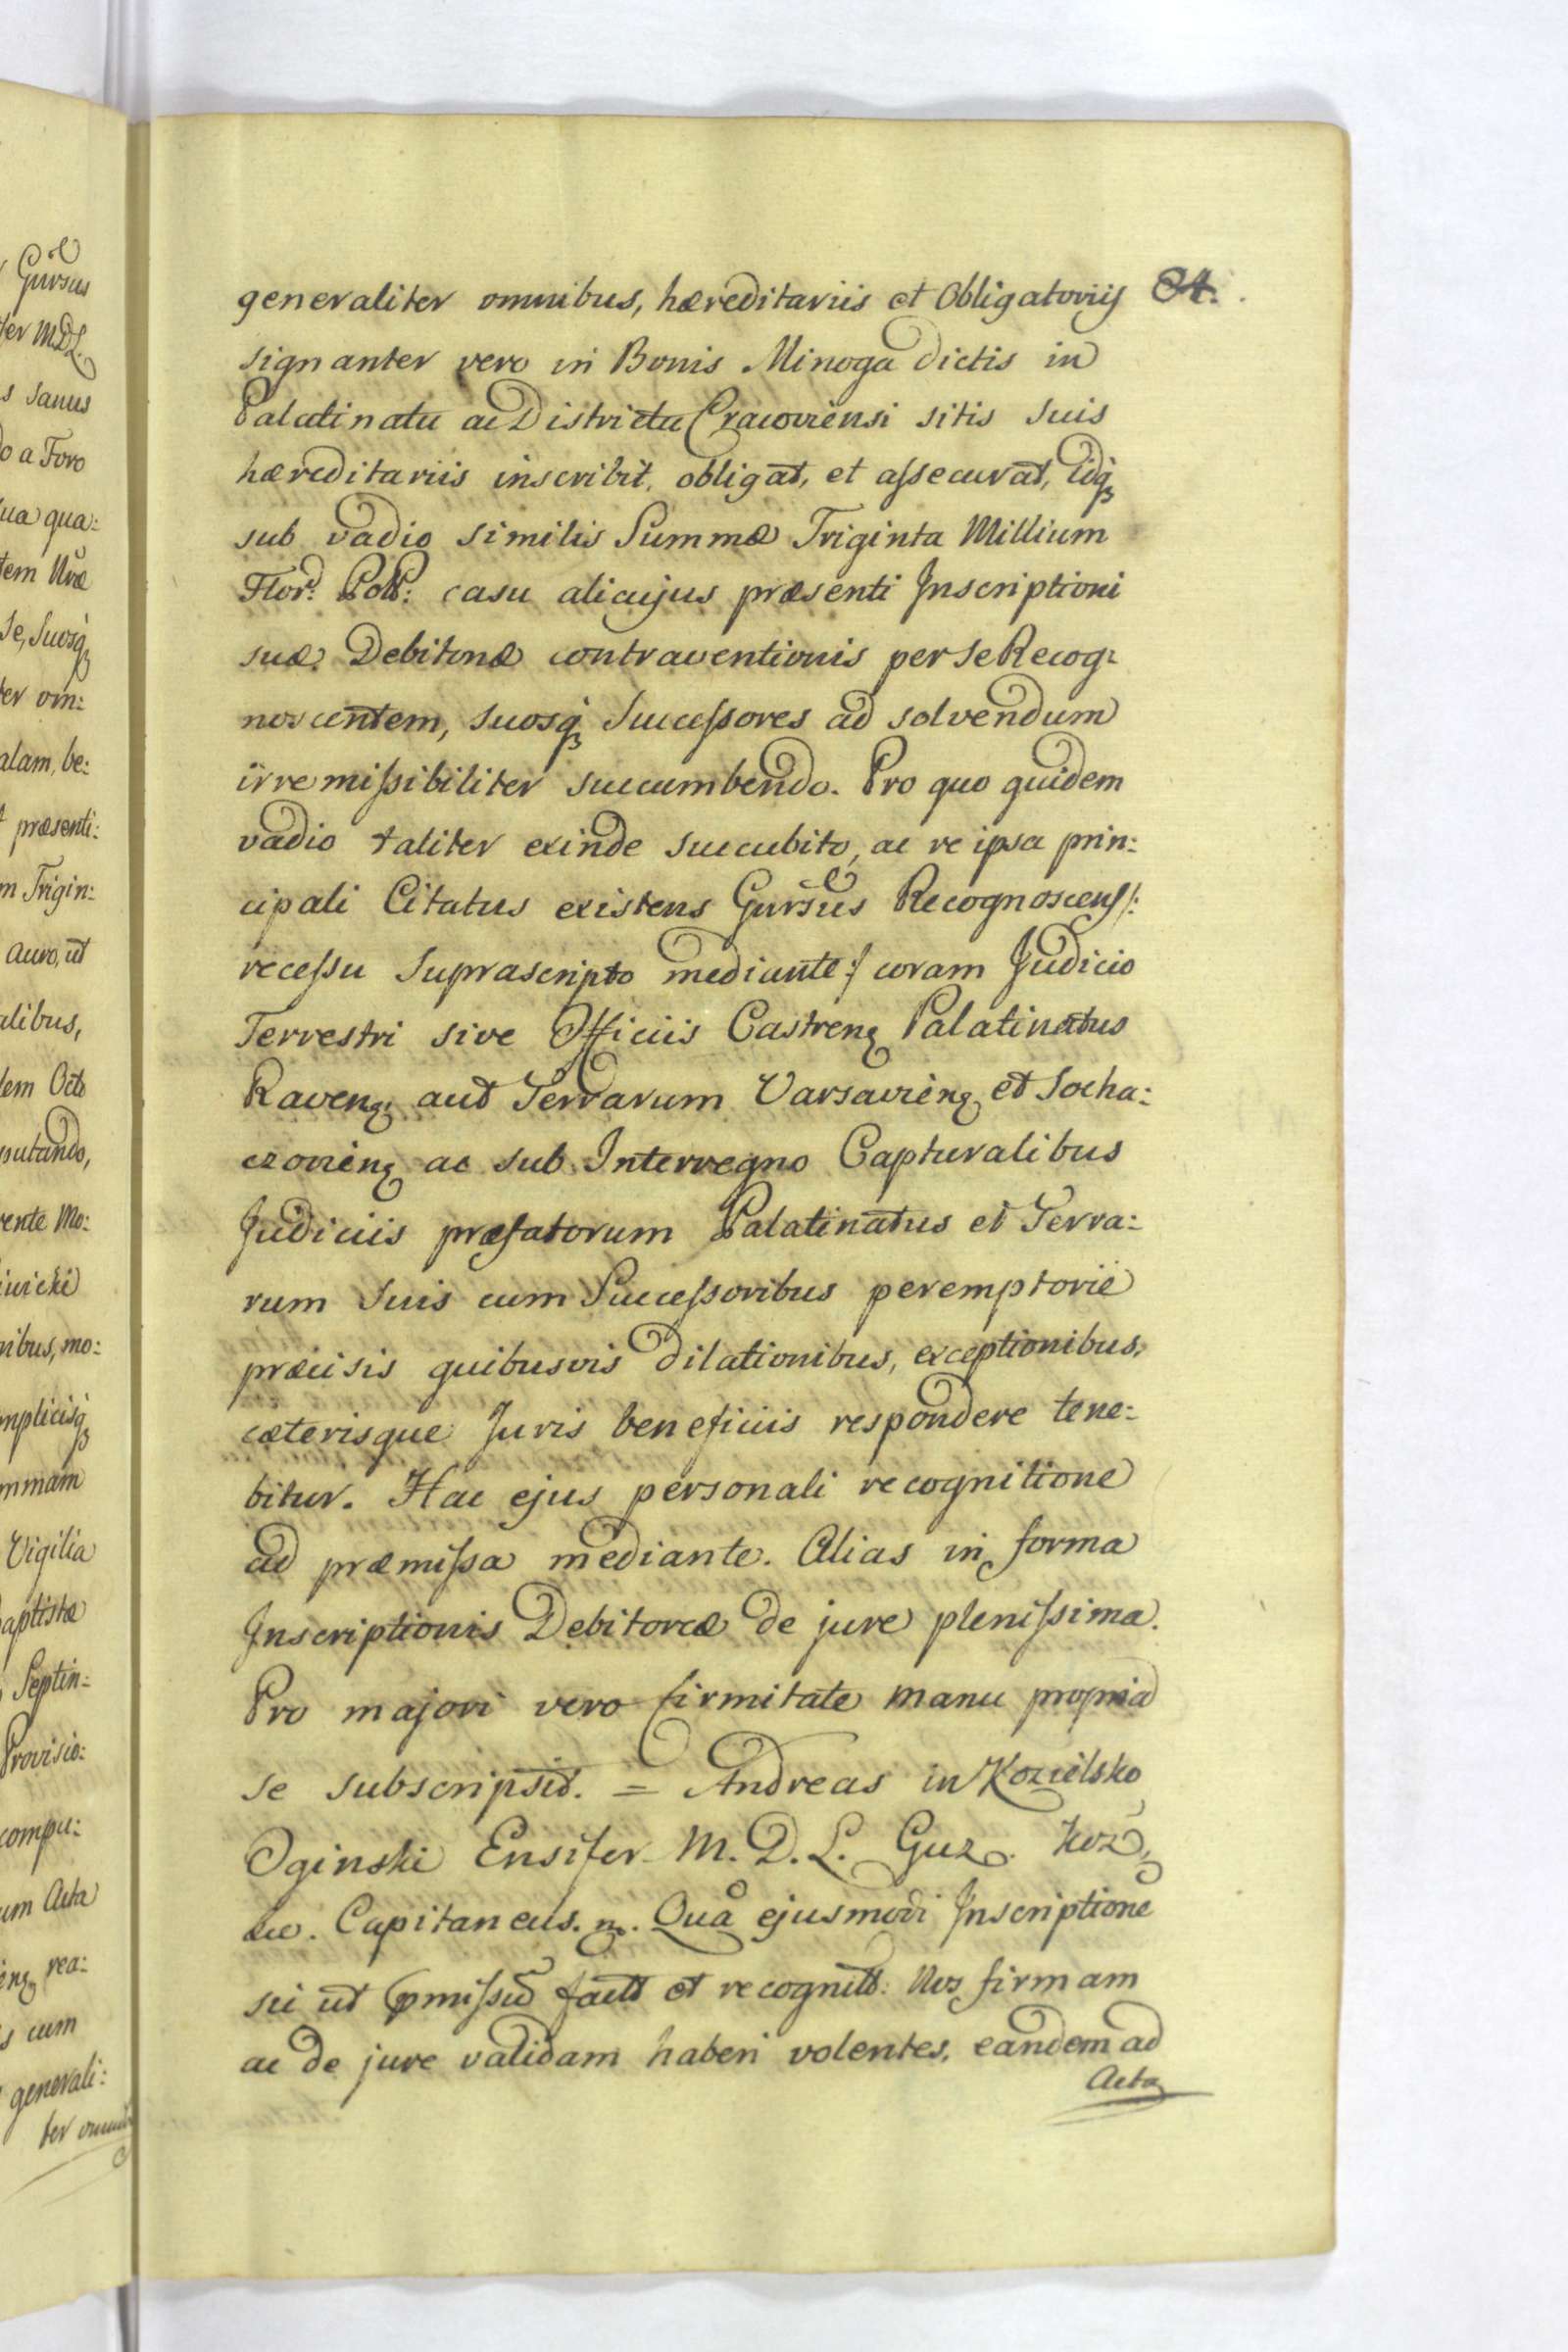 generaliter omnibus, hæreditariis et Obligatoriis 84.
signanter vero in Bonis Minoga dictis in
Palatinatu ac Districtu Cracoviensi sitis suis
hæreditariis inscribit, obligat, et assecurat, idq́
sub vadio similis Summæ Triginta Millium
Flor: Poll: casu alicujus præsenti Inscriptioni
suæ Debitoriæ contraventionis per se Recog:
noscentem, suosq́ Successores ad solvendum
irremissibiliter succumbendo. Pro quo quidem
vadio taliter exinde succubito, ac re ipsa prin:
cipali Citatus existens Gnrsus Recognoscens /:
recessu suprascripto mediante :/ coram Judicio
Terrestri sive Officiis Castren Palatinatus
Raven aut Terrarum Varsavien et Socha:
czovien ac sub Interregno Capturalibus
Judiciis præfatorum Palatinatus et Terra:
rum suis cum Successoribus peremptorie
præcisis quibusvis dilationibus, exceptionibus,
cæterisque Juris beneficiis respondere tene:
bitur. Hac ejus personali recognitione
ad præmissa mediante. Alias in forma
Inscriptionis Debitoreæ de jure plenissima.
Pro majori vero firmitate manu propria
se subscripsit. = Andreas in Kozielsko
Oginski Ensifer M. D. L. Guz. Koz,
&c. Capitaneus. m. Quâ ejusmodi Inscriptione
sic ut pmissũ factt et recognitt: Nos firmam
ac de jure validam haberi volentes, eandem ad
Acta
Gnrsus
fer M.D.L.
s sanus
do a Foro
sua qua:
tem Uræ
se, suosq́
ter om:
alam, be:
t præsenti:
m Trigin:
auro, ut
alibus,
dem Octo
putando,
vente Mo:
nibus, mo:
mplicisq́
ummam
Vigilia
aptistæ
Septin:
Provisio:
compu:
um Acta
rea:
s cum
generali:
ter omni